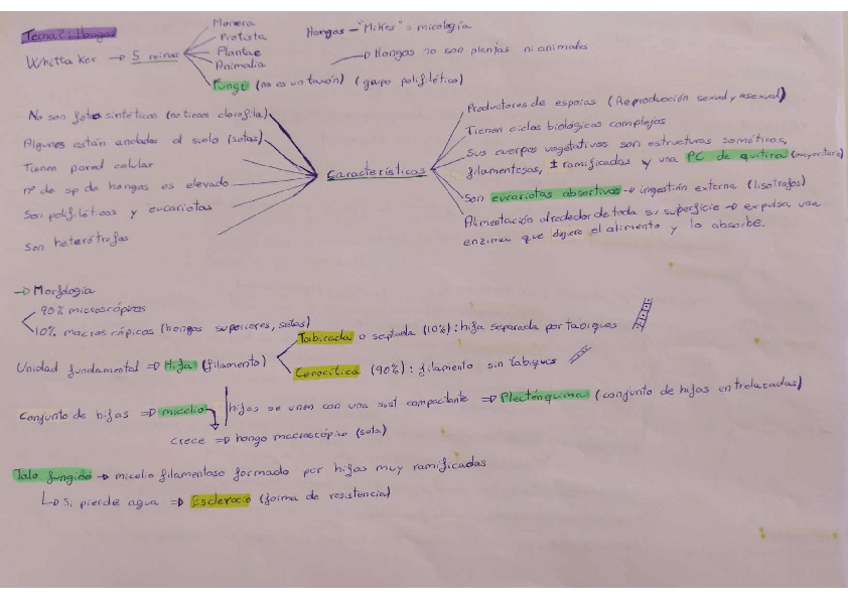 Tema 2: Hongos
Whittaker → 5 reinos
Monera
Protista
Plantae
Animalia
Fungi (no es un taxón) (grupo polifilético)
Hongos - "Mikes" = micología
→ Hongos no son plantas ni animales
Características
No son fotosintéticos (no tienen clorofila)
Algunos están anclados al suelo (setas)
Tienen pared celular
nº de sp de hongos es elevado
Son polifiléticos y eucariotas
Son heterótrofos
Productores de esporas (Reproducción sexual y asexual)
Tienen ciclos biológicos complejos
Sus cuerpos vegetativos son estructuras somáticas,
filamentosas, ± ramificadas y una PC de quitina (mayoritario)
Son eucariotas absortivos → ingestión externa (lisotrofos)
Alimentación alrededor de toda su superficie → expulsa una
enzima que digiere el alimento y lo absorbe.
→ Morfología
90% microscópicos
10% macroscópicos (hongos superiores, setas)
Unidad fundamental ⇒ Hifa (filamento)
Tabicada o septada (10%): hifa separada por tabiques
Cenocítica (90%): filamento sin tabiques
Conjunto de hifas ⇒ micelio
hifas se unen con una sust compactante ⇒ Plecténquima (conjunto de hifas entrelazadas)
crece ⇒ hongo macroscópico (seta)
Talo fúngico → micelio filamentoso formado por hifas muy ramificadas
↳ Si pierde agua ⇒ Esclerocio (forma de resistencia)